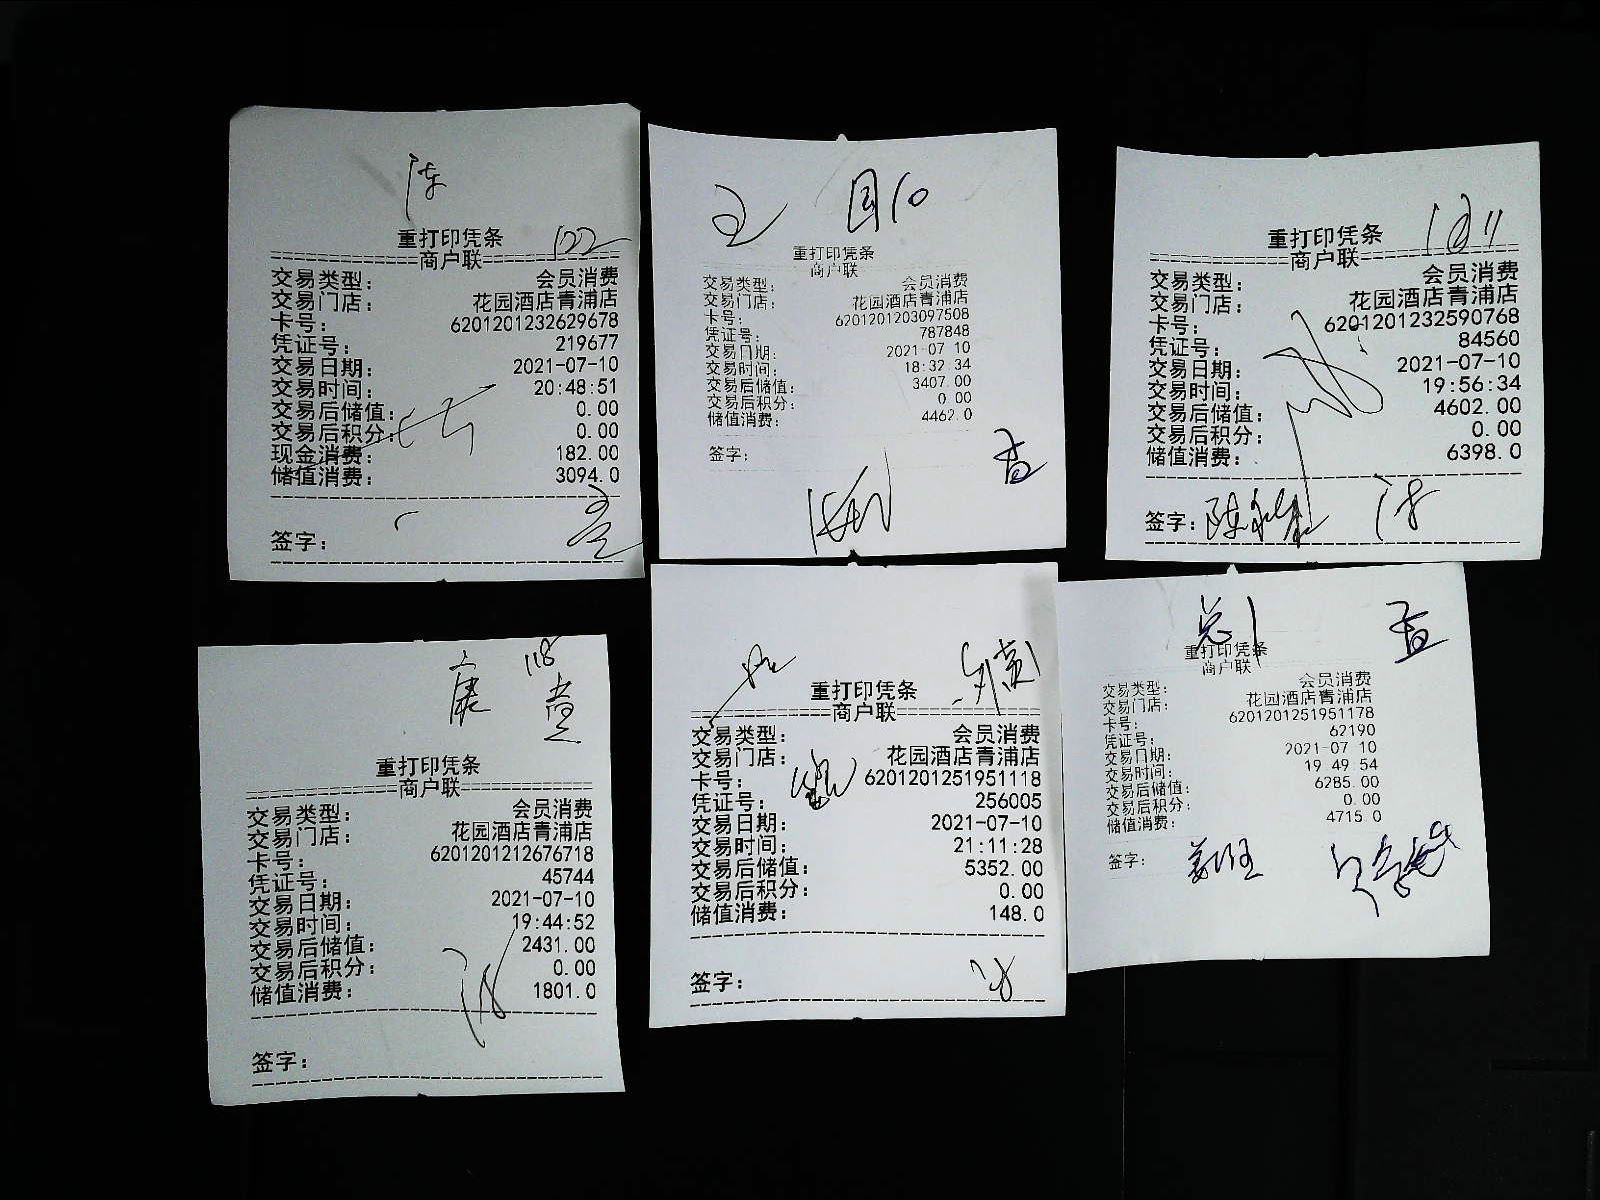 陈
重打印凭条
122
商户联
交易类型： 会员消费
交易门店： 花园酒店青浦店
卡号： 6201201232629678
凭证号： 219677
交易日期： 2021-07-10
交易时间： 20:48:51
交易后储值： 0.00
交易后积分： 0.00
现金消费： 182.00
储值消费： 3094.0
签字：
王 国10
重打印凭条
商户联
交易类型： 会员消费
交易门店： 花园酒店青浦店
卡号： 6201201203097508
凭证号： 787848
交易日期： 2021-07-10
交易时间： 18:32:34
交易后储值： 3407.00
交易后积分： 0.00
储值消费： 4462.0
签字：
重打印凭条
商户联
交易类型： 会员消费
交易门店： 花园酒店青浦店
卡号： 6201201232590768
凭证号： 84560
交易日期： 2021-07-10
交易时间： 19:56:34
交易后储值： 4602.00
交易后积分： 0.00
储值消费： 6398.0
签字：
118
唐
重打印凭条
商户联
交易类型： 会员消费
交易门店： 花园酒店青浦店
卡号： 6201201212676718
凭证号： 45744
交易日期： 2021-07-10
交易时间： 19:44:52
交易后储值： 2431.00
交易后积分： 0.00
储值消费： 1801.0
签字：
重打印凭条
商户联
交易类型： 会员消费
交易门店： 花园酒店青浦店
卡号： 6201201251951118
凭证号： 256005
交易日期： 2021-07-10
交易时间： 21:11:28
交易后储值： 5352.00
交易后积分： 0.00
储值消费： 148.0
签字：
总1
重打印凭条
商户联
交易类型： 会员消费
交易门店： 花园酒店青浦店
卡号： 6201201251951178
凭证号： 62190
交易日期： 2021-07-10
交易时间： 19:49:54
交易后储值： 6285.00
交易后积分： 0.00
储值消费： 4715.0
签字：